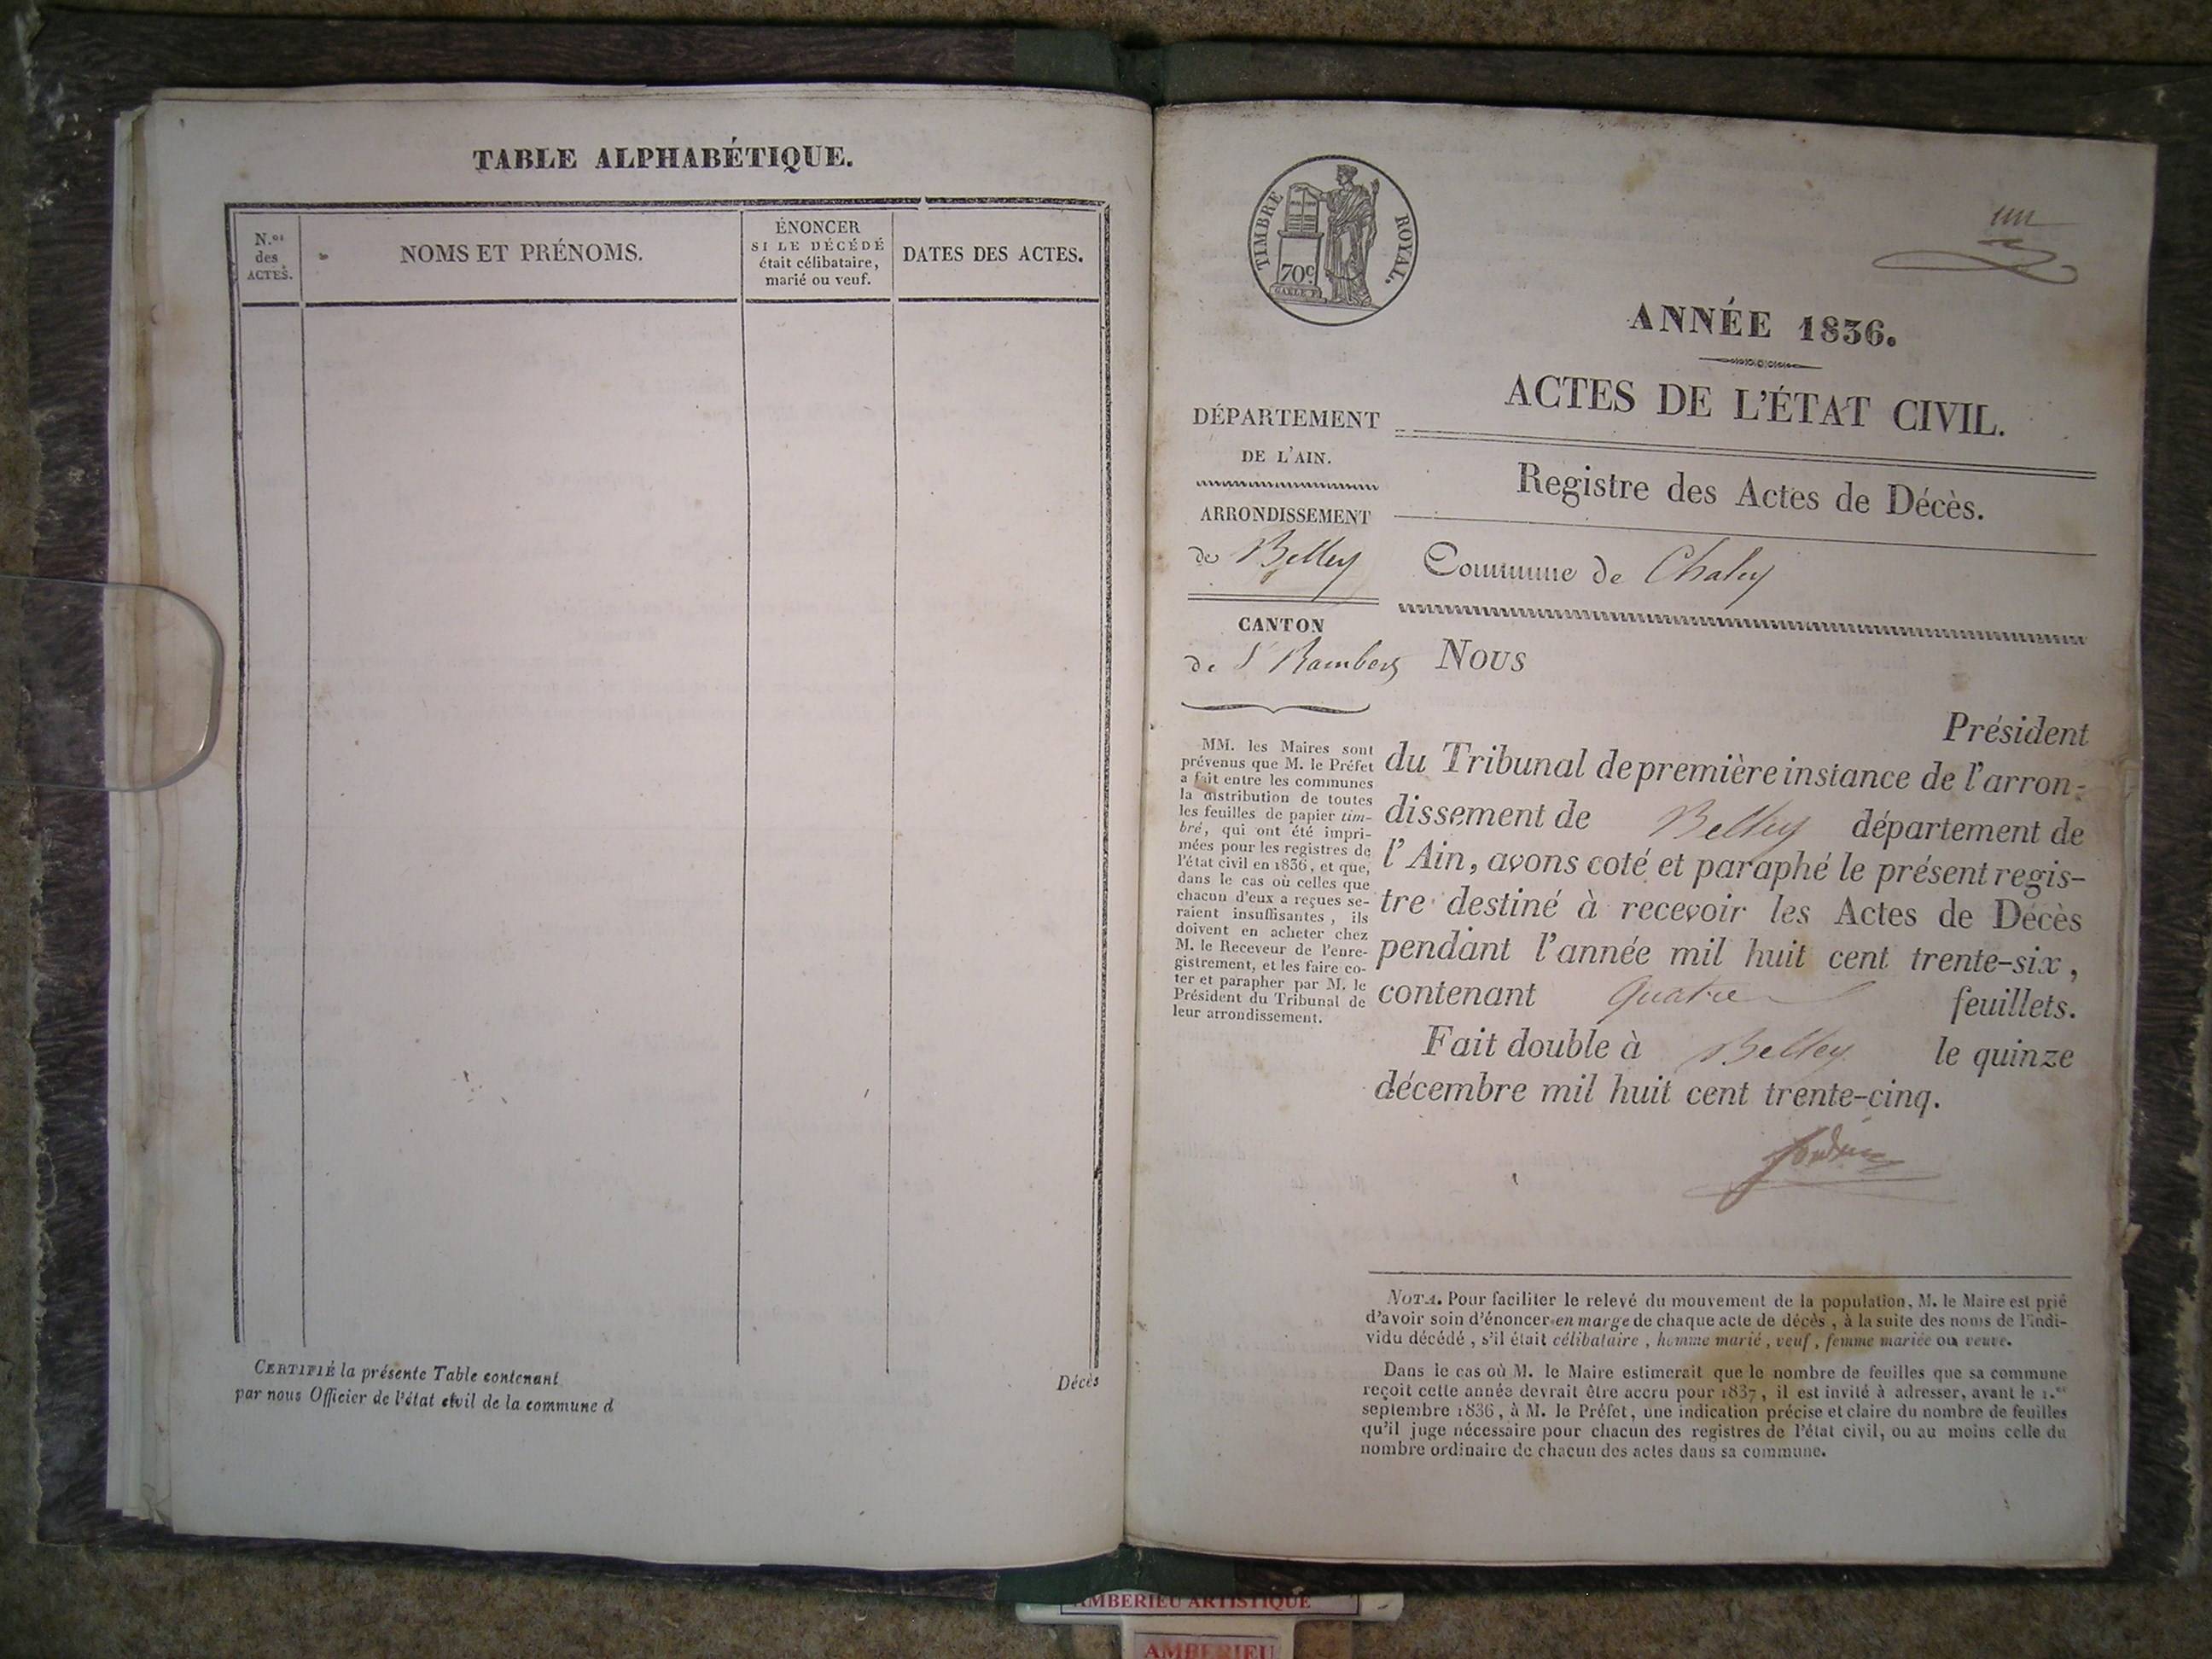 TABLE ALPHABÉTIQUE.
N.os
des
ACTES.
NOMS ET PRÉNOMS.
ÉNONCER
SI LE DÉCÉDÉ
était célibataire,
marié ou veuf.
DATES DES ACTES.
CERTIFIÉ la présente Table contenant
Décès
par nous Officier de l'état civil de la commune d
TIMBRE ROYAL.
70c
un
ANNÉE 1836.
ACTES DE L'ÉTAT CIVIL.
DÉPARTEMENT
DE L'AIN.
ARRONDISSEMENT
de Belley
CANTON
de St Rambert
MM. les Maires sont
prévenus que M. le Préfet
a fait entre les communes
la distribution de toutes
les feuilles de papier tim-
bré, qui ont été impri-
mées pour les registres de
l'état civil en 1836, et que,
dans le cas où celles que
chacun d'eux a reçues se-
raient insuffisantes, ils
doivent en acheter chez
M. le Receveur de l'enre-
gistrement, et les faire co-
ter et parapher par M. le
Président du Tribunal de
leur arrondissement.
Registre des Actes de Décès.
Commune de Chaley
Nous
Président
du Tribunal de première instance de l'arron-
dissement de Belley département de
l'Ain, avons coté et paraphé le présent regis-
tre destiné à recevoir les Actes de Décès
pendant l'année mil huit cent trente-six,
contenant Quatre feuillets.
Fait double à Belley le quinze
décembre mil huit cent trente-cinq.
NOTA. Pour faciliter le relevé du mouvement de la population, M. le Maire est prié
d'avoir soin d'énoncer en marge de chaque acte de décès, à la suite des noms de l'indi-
vidu décédé, s'il était célibataire, homme marié, veuf, femme mariée ou veuve.
Dans le cas où M. le Maire estimerait que le nombre de feuilles que sa commune
reçoit cette année devrait être accru pour 1837, il est invité à adresser, avant le 1.er
septembre 1836, à M. le Préfet, une indication précise et claire du nombre de feuilles
qu'il juge nécessaire pour chacun des registres de l'état civil, ou au moins celle du
nombre ordinaire de chacun des actes dans sa commune.
AMBERIEU ARTISTIQUE
AMBERIEU